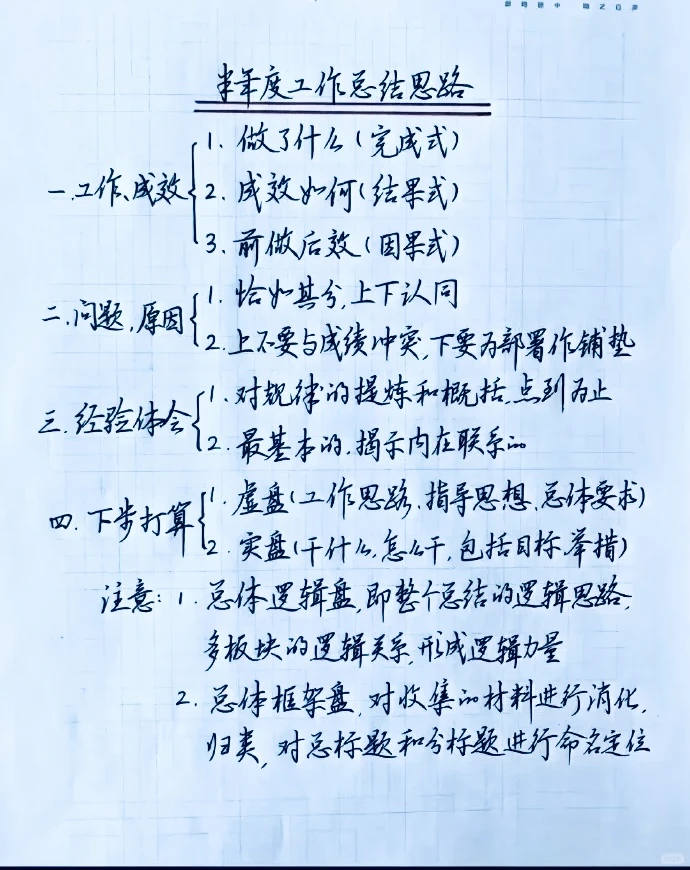 半年度工作总结思路
一.工作、成效
1. 做了什么(完成式)
2. 成效如何(结果式)
3. 前做后效(因果式)
二.问题,原因
1. 恰如其分,上下认同
2. 上不要与成绩冲突,下要为部署作铺垫
三.经验体会
1. 对规律的提炼和概括,点到为止
2. 最基本的,揭示内在联系的
四.下步打算
1. 虚盘(工作思路、指导思想、总体要求)
2. 实盘(干什么,怎么干,包括目标、举措)
注意: 1. 总体逻辑盘,即整个总结的逻辑思路,
多板块的逻辑关系,形成逻辑力量
2. 总体框架盘,对收集的材料进行消化,
归类,对总标题和分标题进行命名定位